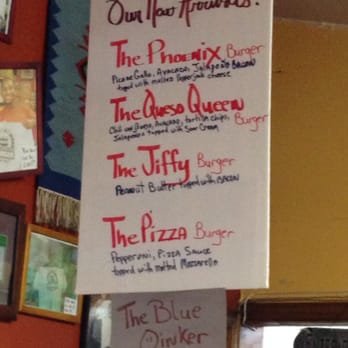 Our New Arrivals!
The Phoenix Burger
Pico de Gallo, Avocado, Jalapeño BACON
topped with melted Pepperjack cheese
The Queso Queen
Burger
Chili con Queso, Avocado, tortilla chips,
Jalapeños topped with Sour Cream
The Jiffy Burger
Peanut Butter topped with BACON
The Pizza Burger
Pepperoni, Pizza Sauce
topped with melted Mozzarella
The Blue